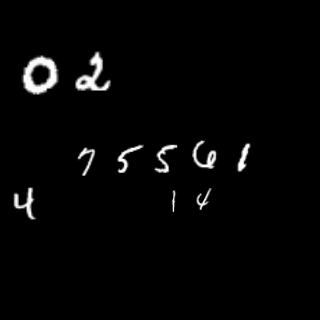 02
75561
4
14